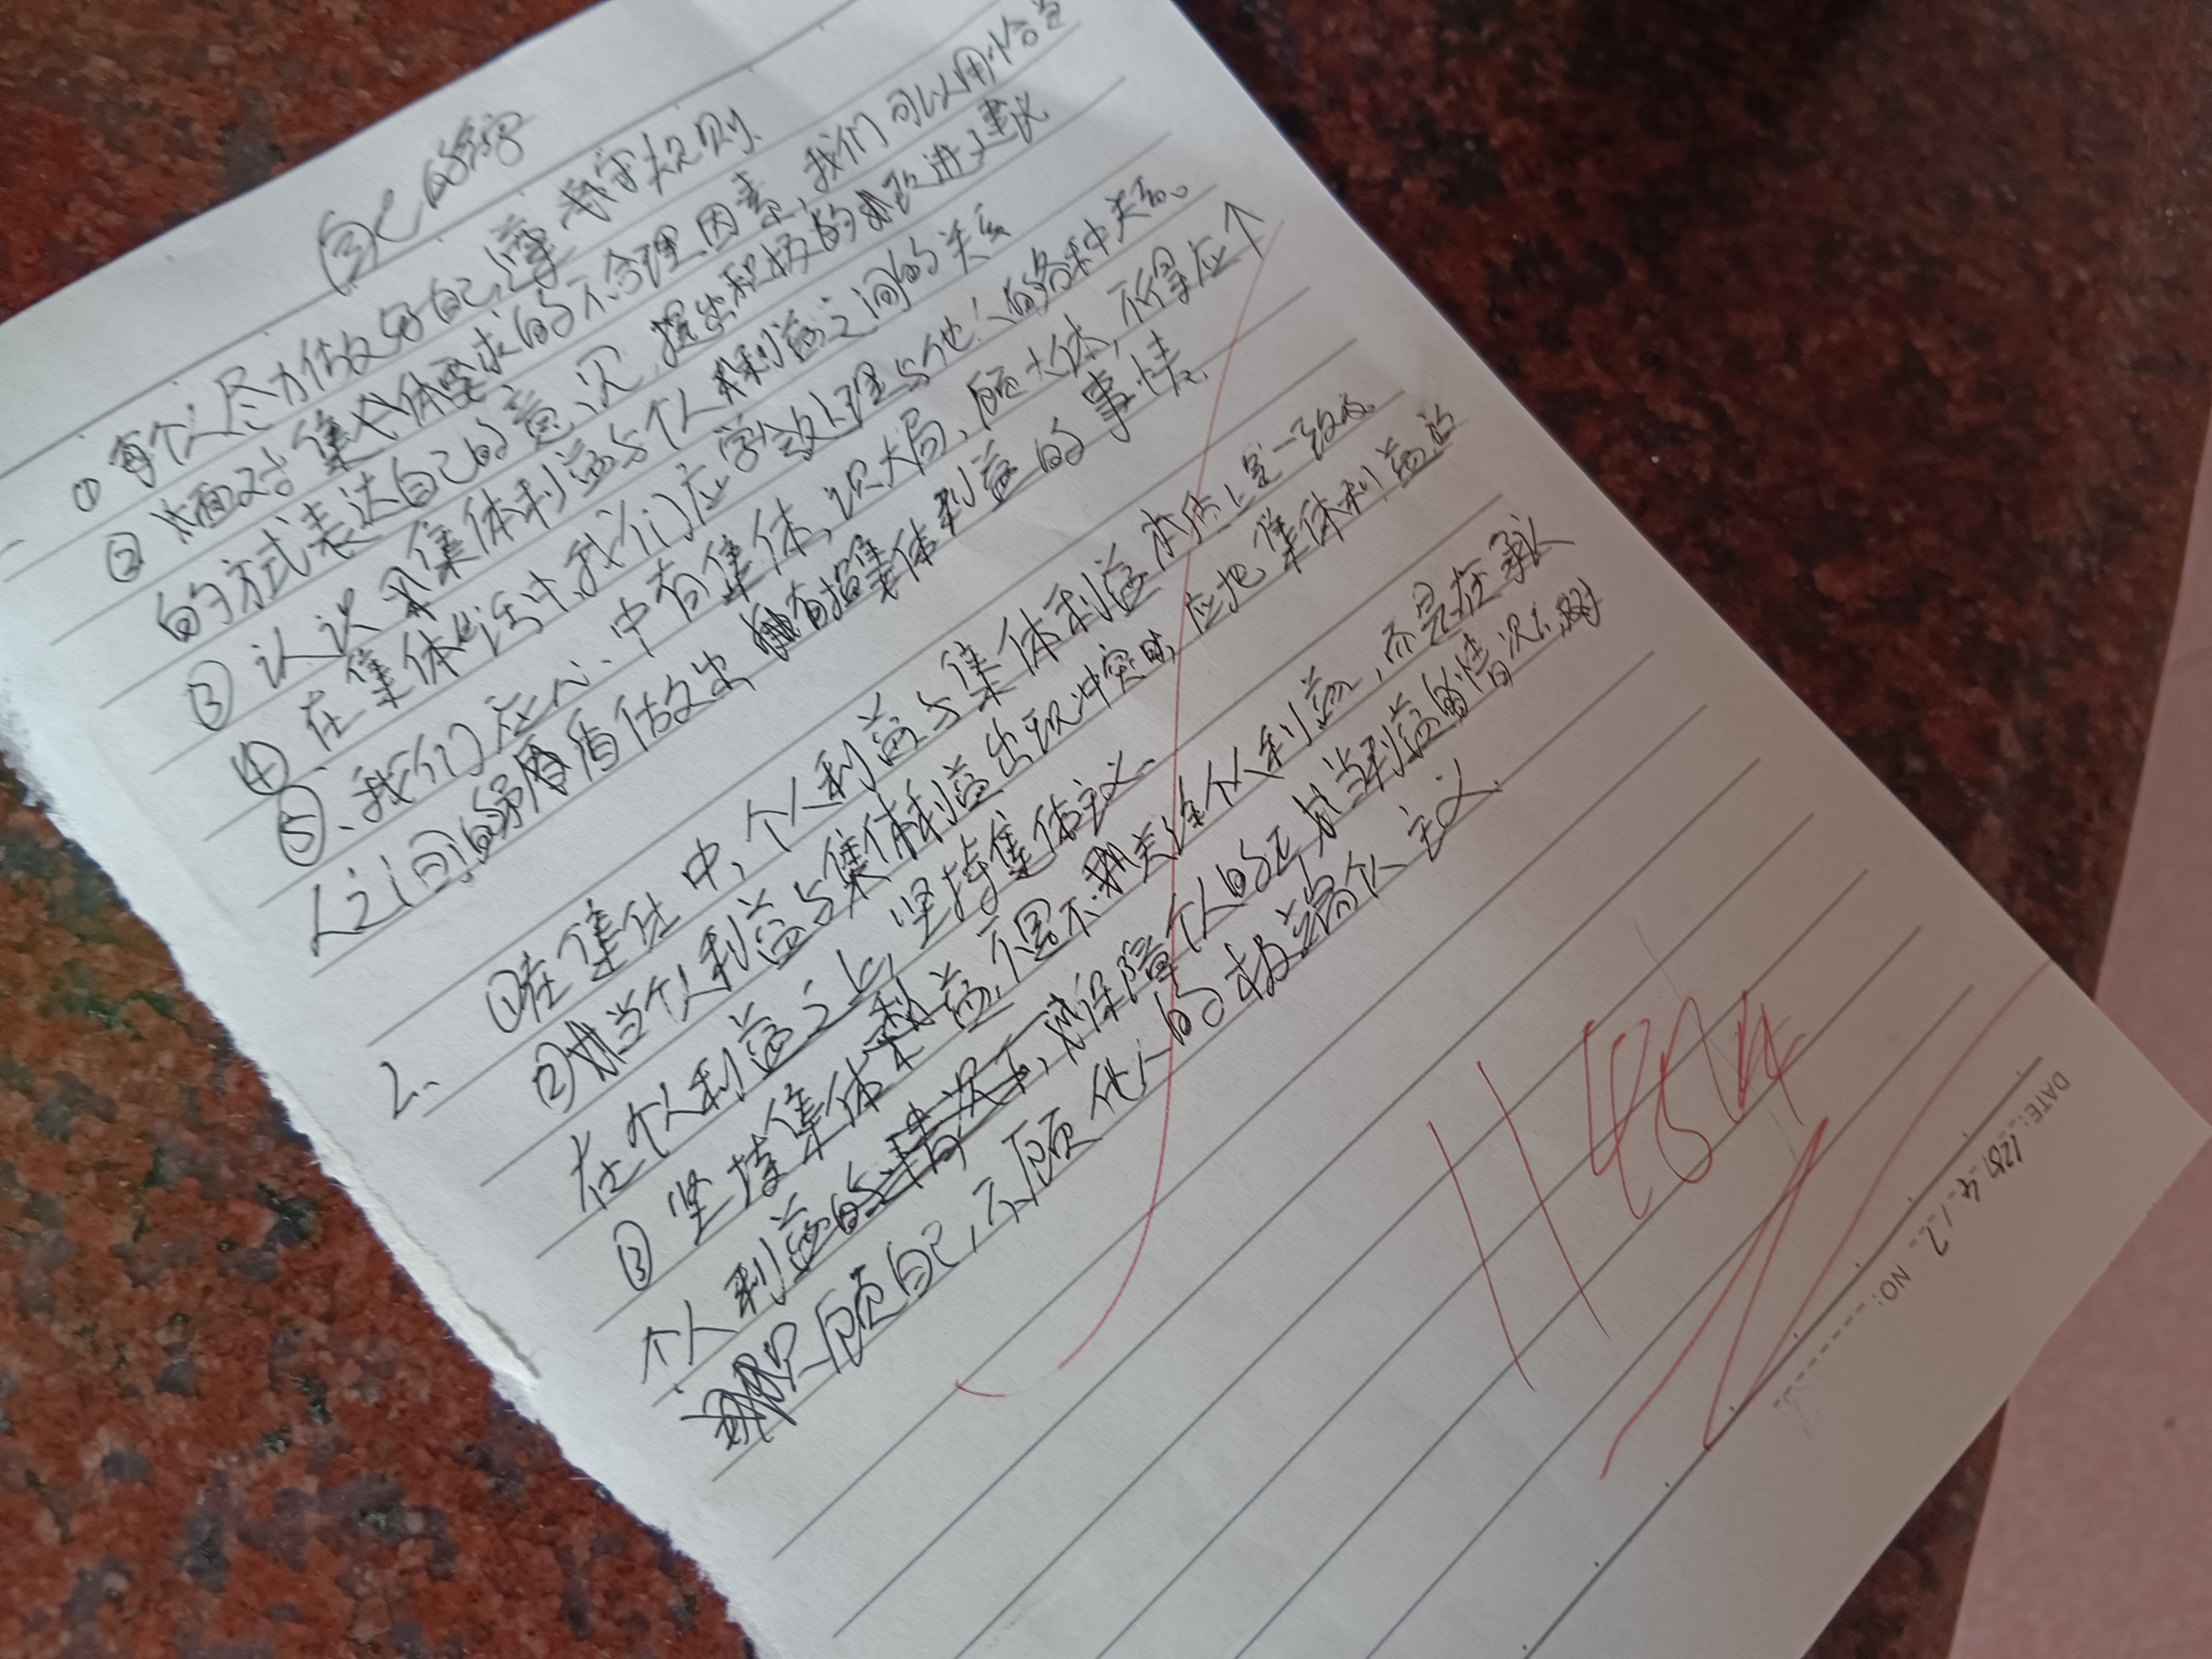 自己的
① 每个人尽力做好自己,遵守规则.
② 面对集体要求的不合理因素,我们可以用恰当
的方式表达自己的意见,提出积极的改进建议
③ 认识集体利益与个人利益之间的关系
④ 在集体生活中,我们应学会处理与他人的各种关系。
⑤、我们应心中有集体,识大局,顾大体,不得应个
人之间的矛盾做出有损集体利益的事情.
2. ①在集体中,个人利益与集体利益本质上是一致的.
②当个人利益与集体利益出现冲突时,应把集体利益放
在个人利益之上,坚持集体主义.
③ 坚持集体利益,不是不关注个人利益,而是在承认
个人利益的,保障个人的正当利益的情况下,
只顾自己,不顾他人的极端个人主义.
DATE: 4 17 NO: